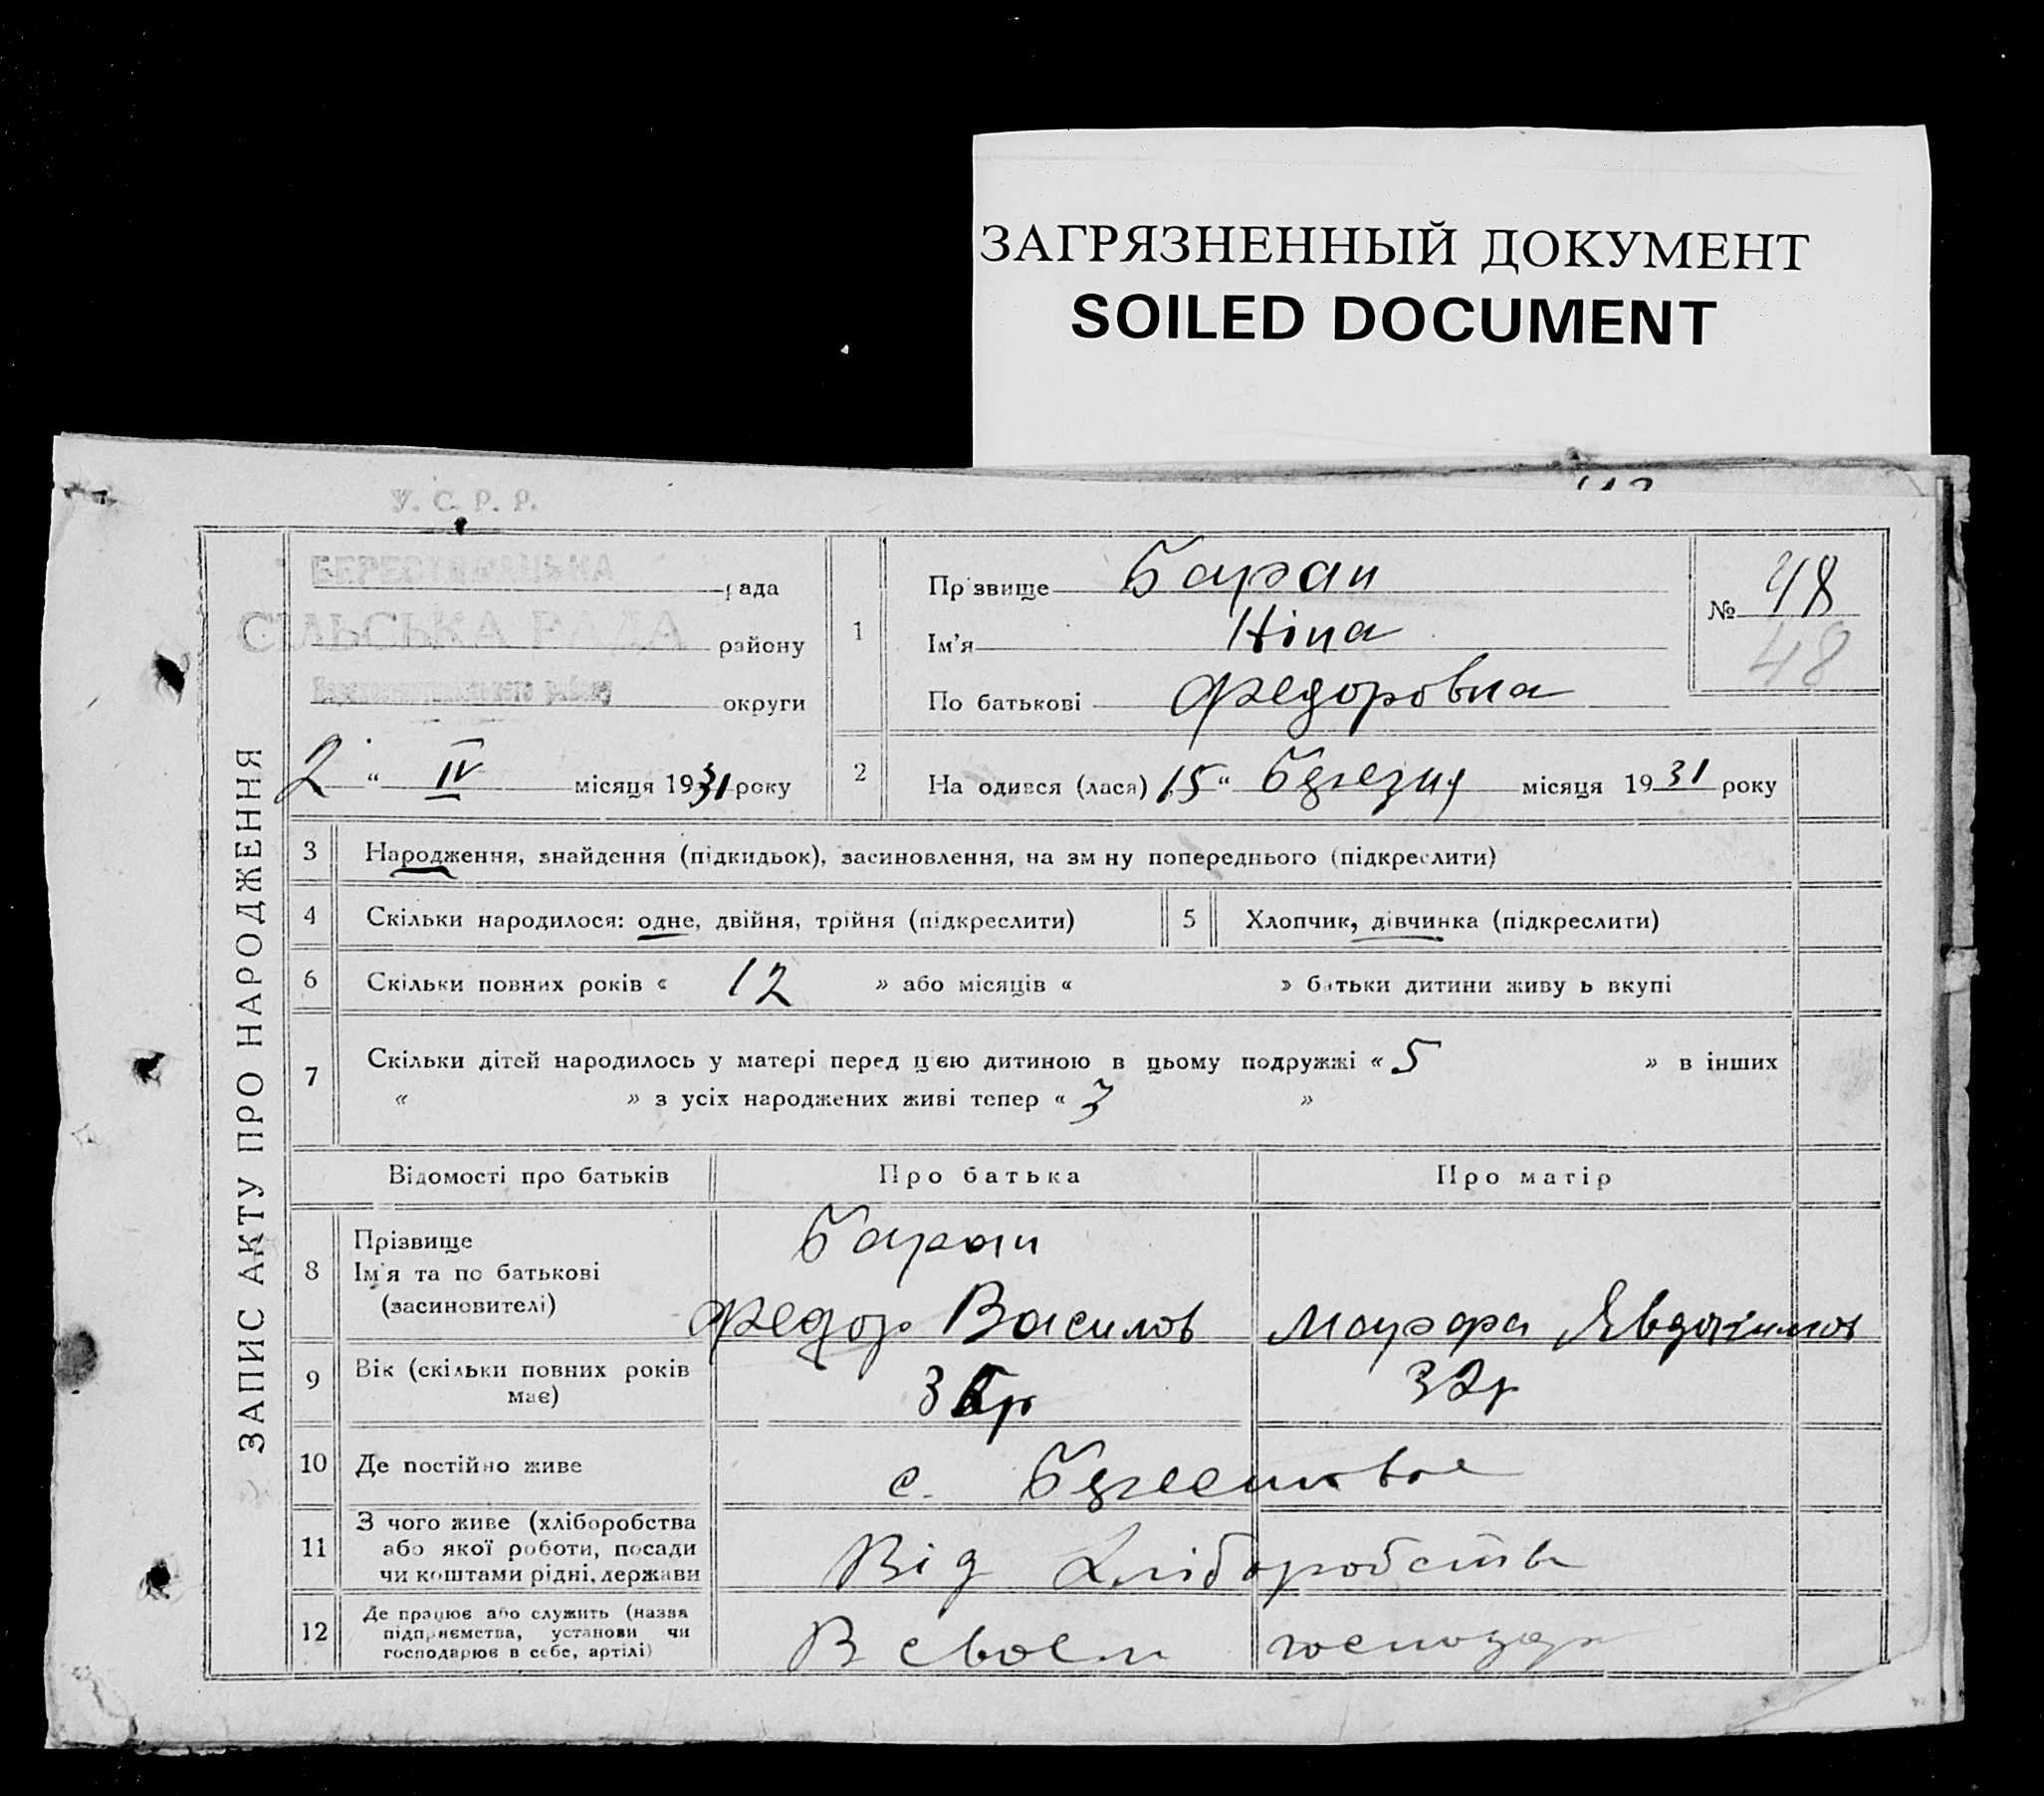 ЗАГРЯЗНЕННЫЙ ДОКУМЕНТ
SOILED DOCUMENT
У. С. Р. Р.
ЗАПИС АКТУ ПРО НАРОДЖЕННЯ
рада
СІЛЬСЬКА РАДА
району
округи
2 “ IV місяця 1931 року
1
Прізвище Баран
Ім’я Ніна
По батькові Федоровна
№ 48
48
2
Народився (лася) 15 “ Березня місяця 1931 року
3 Народження, знайдення (підкидьок), засиновлення, на зміну попереднього (підкреслити)
4 Скільки народилося: одне, двійня, трійня (підкреслити)
5 Хлопчик, дівчинка (підкреслити)
6 Скільки повних років « 12 » або місяців « » батьки дитини живуть вкупі
7 Скільки дітей народилось у матері перед цією дитиною в цьому подружжі « 5 » в інших
« » з усіх народжених живі тепер « 3 »
Відомості про батьків Про батька Про матір
8 Прізвище
Ім’я та по батькові
(засиновителі)
Баран
Федор Василов
Марфа Явдокимов
9 Вік (скільки повних років
має)
32р
10 Де постійно живе
с. Берестовое
11 З чого живе (хліборобства
або якої роботи, посади
чи коштами рідні, держави
Від Хліборобств
12 Де працює або служить (назва
підприємства, установи чи
господарює в себе, артілі)
В своєм господар